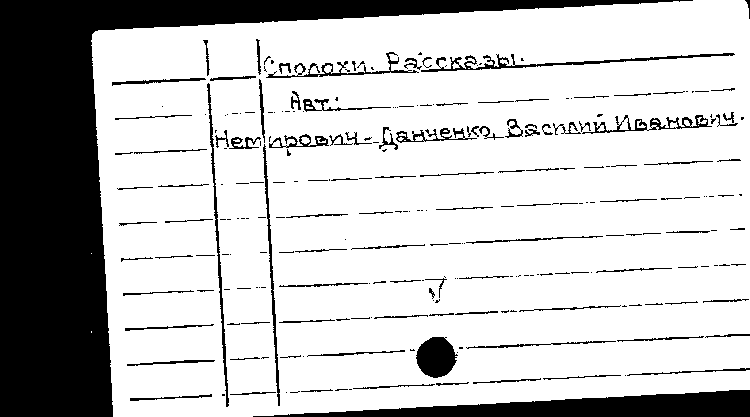 Сполохи. Рассказы.
Авт.:
Немирович-Данченко, Василий Иванович.